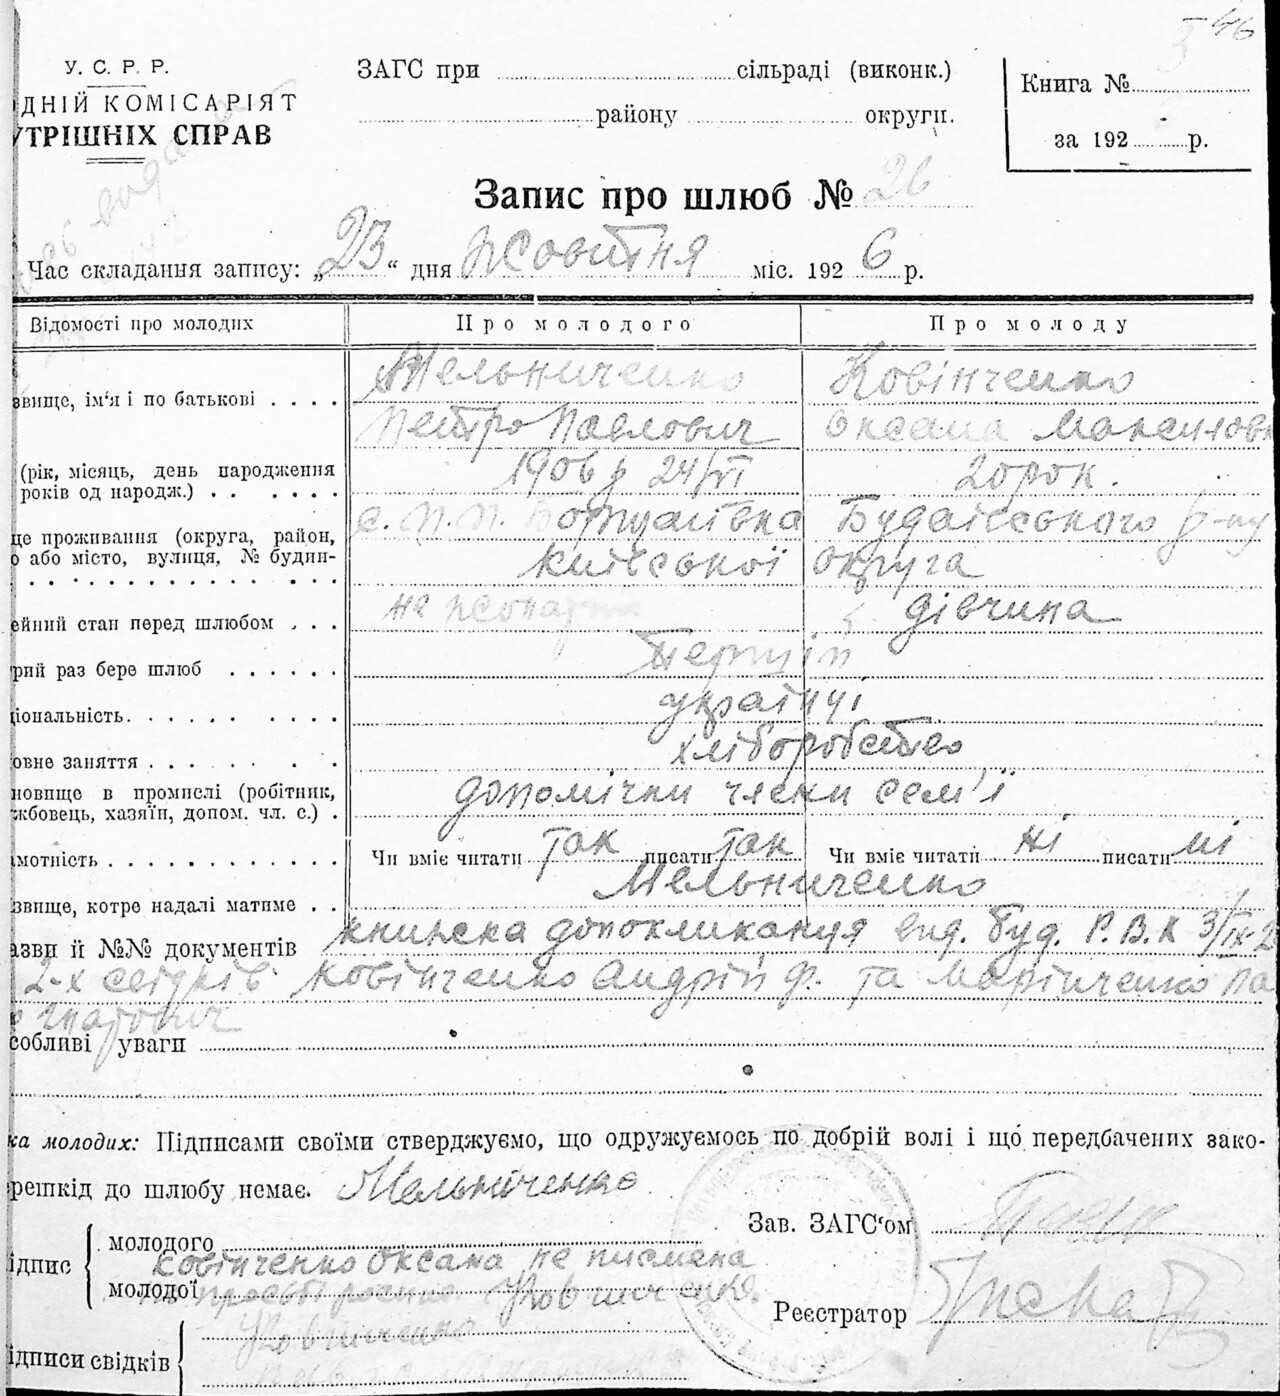 46
У. С. Р. Р.
ДНІЙ КОМІСАРІЯТ
УТРІШНІХ СПРАВ
ЗАГС при сільраді (виконк.)
району округи.
Книга №
за 192 р.
Запис про шлюб № 26
Час складання запису: „23“ дня жовтня міс. 1926 р.
Відомості про молодих Про молодого Про молоду
звище, ім'я і по батькові Мельниченко Ковінченко
Петро Павлович Оксана Максимовн
(рік, місяць, день народження 1906 р 24/VI 20 рок.
років од народж.)
це проживання (округа, район, с. П.П. Борщагівка Будаївського р-ну
о або місто, вулиця, № будин- Київської округа
ейний стан перед шлюбом не жонат дівчина
рий раз бере шлюб Перший
ціональність українці
овне заняття хліборобство
новище в промислі (робітник, допомічни члени сем'ї
жбовець, хазяїн, допом. чл. с.)
мотність Чи вміє читати так писати так Чи вміє читати ні писати ні
звище, котре надалі матиме Мельниченко
азви й №№ документів книжка допокликання вид. Буд. Р.В.К 3/IX-2
2-х свідків Ковінченко Андрій Ф. та Марінченко Па
Гнатович
собливі уваги
ка молодих: Підписами своїми стверджуємо, що одружуємось по добрій волі і що передбачених зако-
решкід до шлюбу немає. Мельніченко
Зав. ЗАГС'ом
ідпис молодого
Ковінченко Оксана не писмена
молодої Ковінченко
Реєстратор
Ковінченко
ідписи свідків